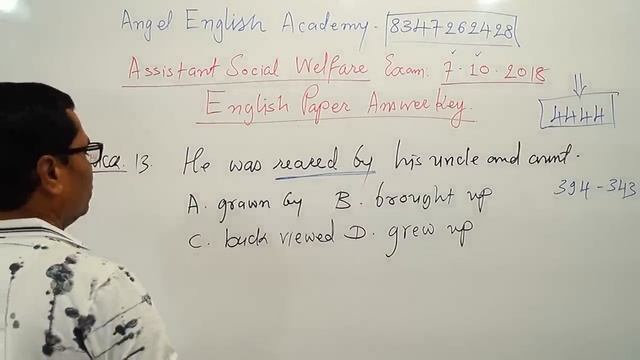 Angel English Academy. 8347262428
Assistant Social Welfare Exam: 7.10.2018
English Paper Answer Key.
4444
13. He was reared by his uncle and aunt.
A. grawn by B. brought up
394-343
C. back viewed D. grew up